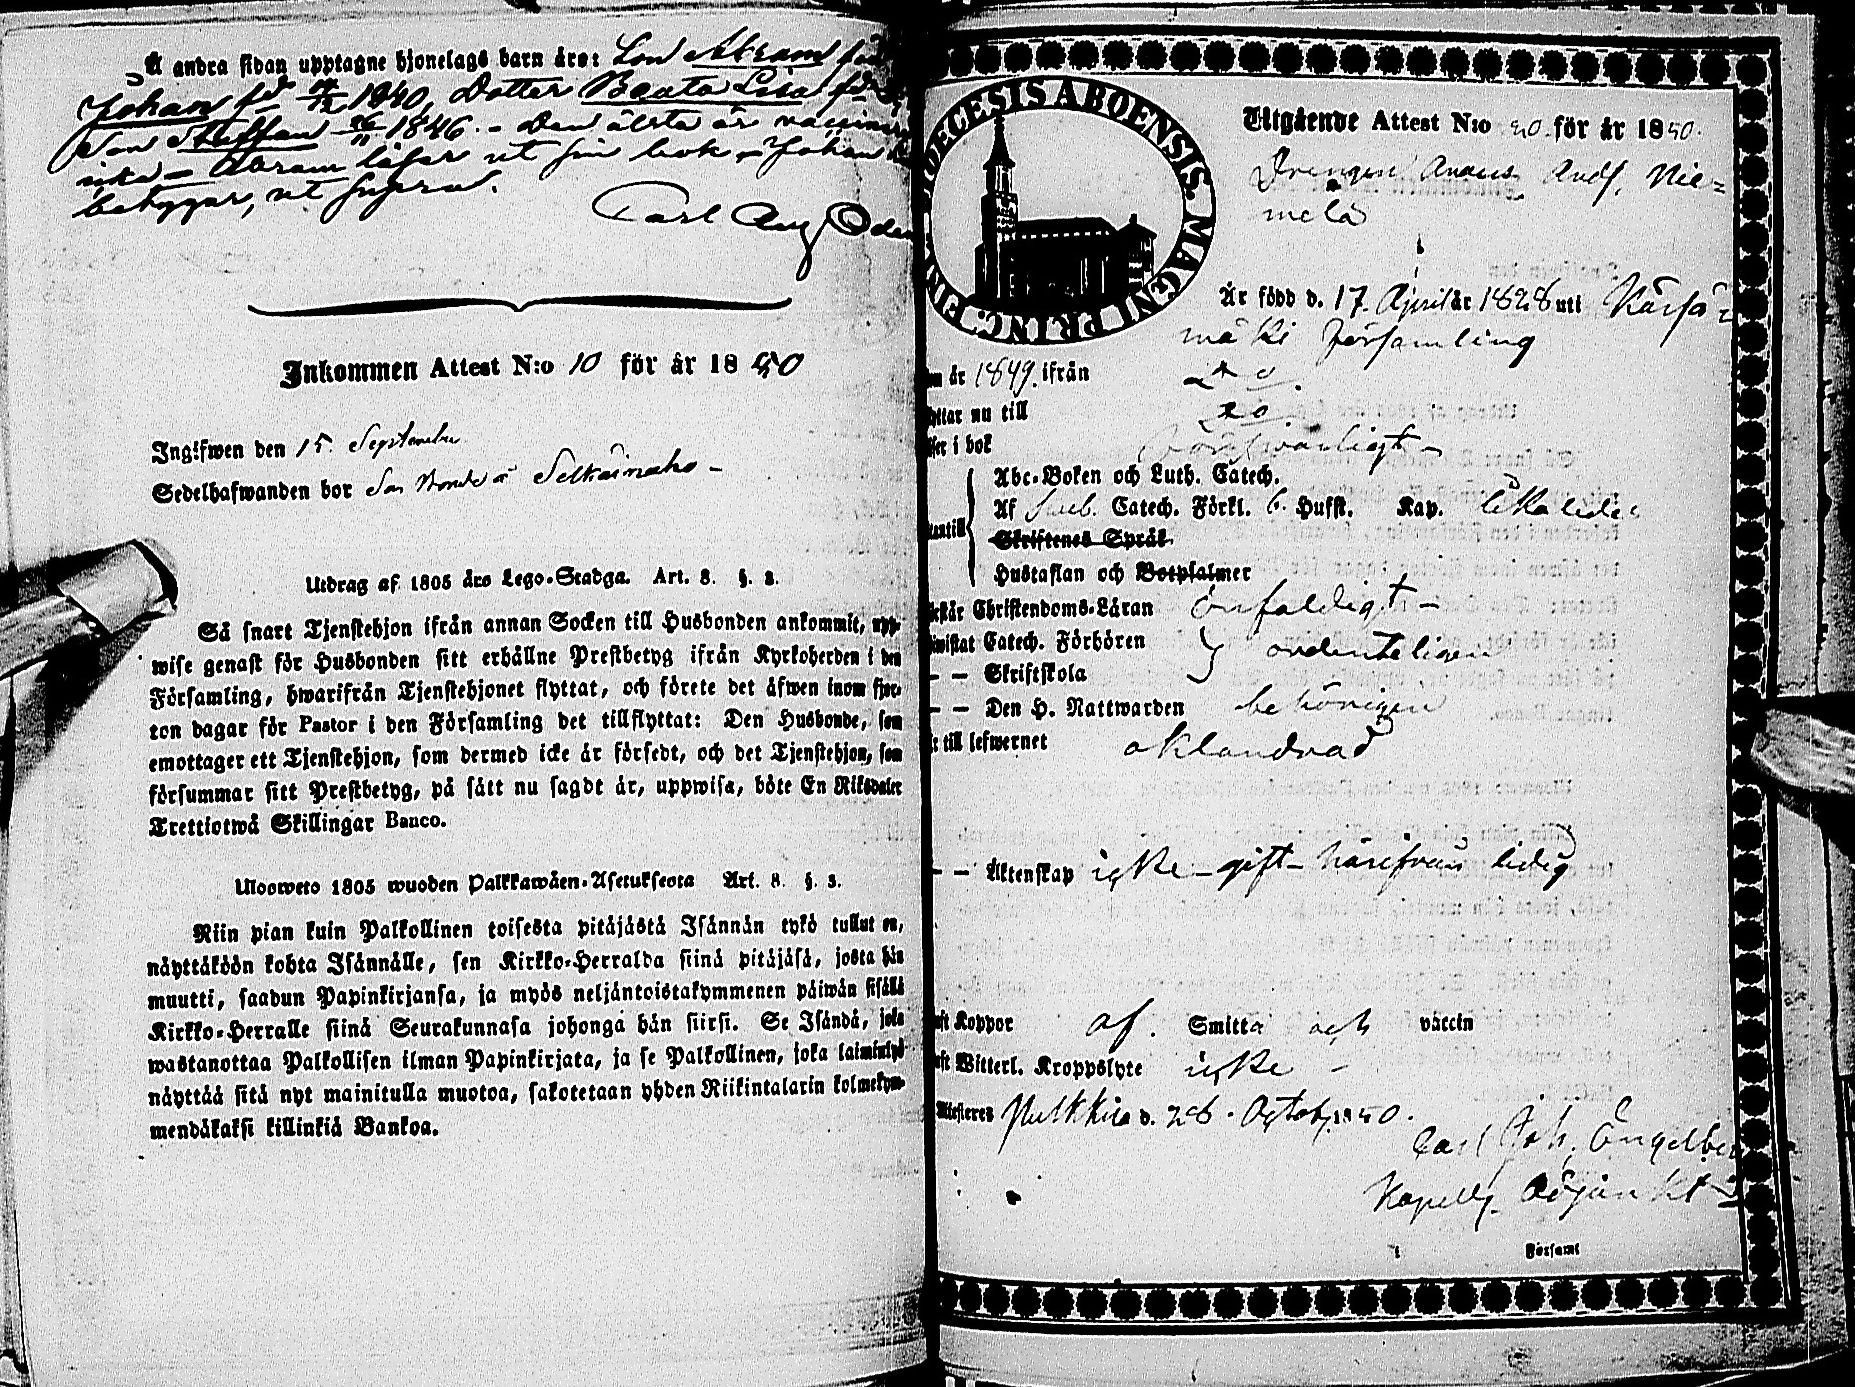 Å andra sidan upptagne hjonelags barn äro: Son Abram
Johan fd 1840, Dotter Beata Lisa fd
Son Staffan 26/11 1846. - Den älsta är
icke - Abram läser ut sin bok - Johan
betygar, ut supra.
Carl Aug Oden
Inkommen Attest N:o 10 för år 1850
Ingifwen den 15. September
Sedelhafwanden bor Selkäinaho -
Utdrag af 1805 års Lego-Stadga. Art. 8. §. 3.
Så snart Tjenstehjon ifrån annan Socken till Husbonden ankommit, upp-
wise genast för Husbonden sitt erhållne Prestbetyg ifrån Kyrkoherden i den
Församling, hwarifrån Tjenstehjonet flyttat, och förete det äfwen inom fjor-
ton dagar för Pastor i den Församling det tillflyttat: Den Husbonde, som
emottager ett Tjenstehjon, som dermed icke är försedt, och det Tjenstehjon, som
försummar sitt Prestbetyg, på sätt nu sagdt är, uppwisa, böte En Riksdaler
Trettiotwå Skillingar Banco.
Ulosweto 1805 wuoden Palkkawäen-Asetuksesta Art. 8. §. 3.
Niin pian kuin Palkollinen toisesta pitäjästä Isännän tykö tullut on,
näyttäköön kohta Isännälle, sen Kirkko-Herralda siinä pitäjäsä, josta hän
muutti, saadun Papinkirjansa, ja myös neljäntoistakymmenen päiwän sisällä
Kirkko-Herralle siinä Seurakunnasa johonga hän siirsi. Se Isändä, joka
wastanottaa Palkollisen ilman Papinkirjata, ja se Palkollinen, joka laiminlyö
näyttää sitä nyt mainitulla muotoa, sakotetaan yhden Riikintalarin kolmekym-
mendäkaksi killinkiä Bankoa.
DIOECESIS ABOENSIS. MAGNI PRINC. FIN
Utgående Attest N:o 20. för år 1850.
Drengen Anders Andf. Nie-
melä
Är född d. 17. April år 1828 uti Kärsä-
mäki församling
år 1849. ifrån do
flyttar nu till do
i bok försvarligt -
Abc-Boken och Luth. Catech.
Af Sveb. Catech. Förkl. 6. Hufst. Kap. likaledes
Skriftenes Språk
Hustaflan och Botpsalmer
Christendoms-Läran enfaldigt -
Catech. Förhören
ordenteligen
- - Skriftskola
- - Den H. Nattwarden behörigen
till lefwernet oklandrad
- - Äktenskap icke gift - härifrån ledig
Koppor af. Smitta och vaccin
Witterl. Kroppslyte icke -
Attesteres Pulkkila d. 26. Octob. 1850.
Carl Joh. Engelberg
Kapells Adjunkt
i Församl